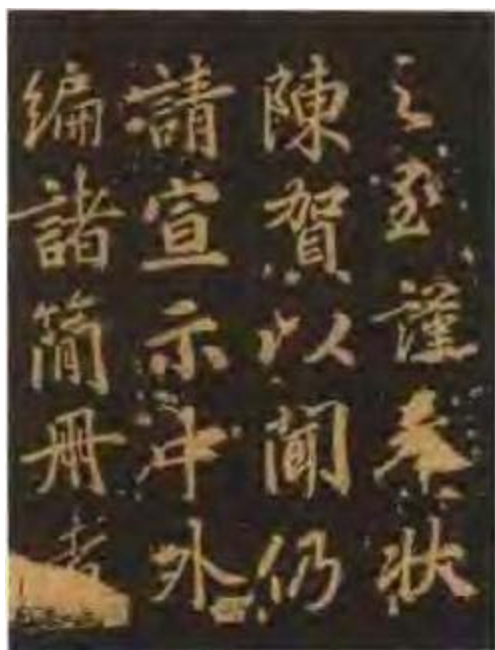 之至謹奉状
陳賀以聞仍
請宣示中外
編諸簡冊者